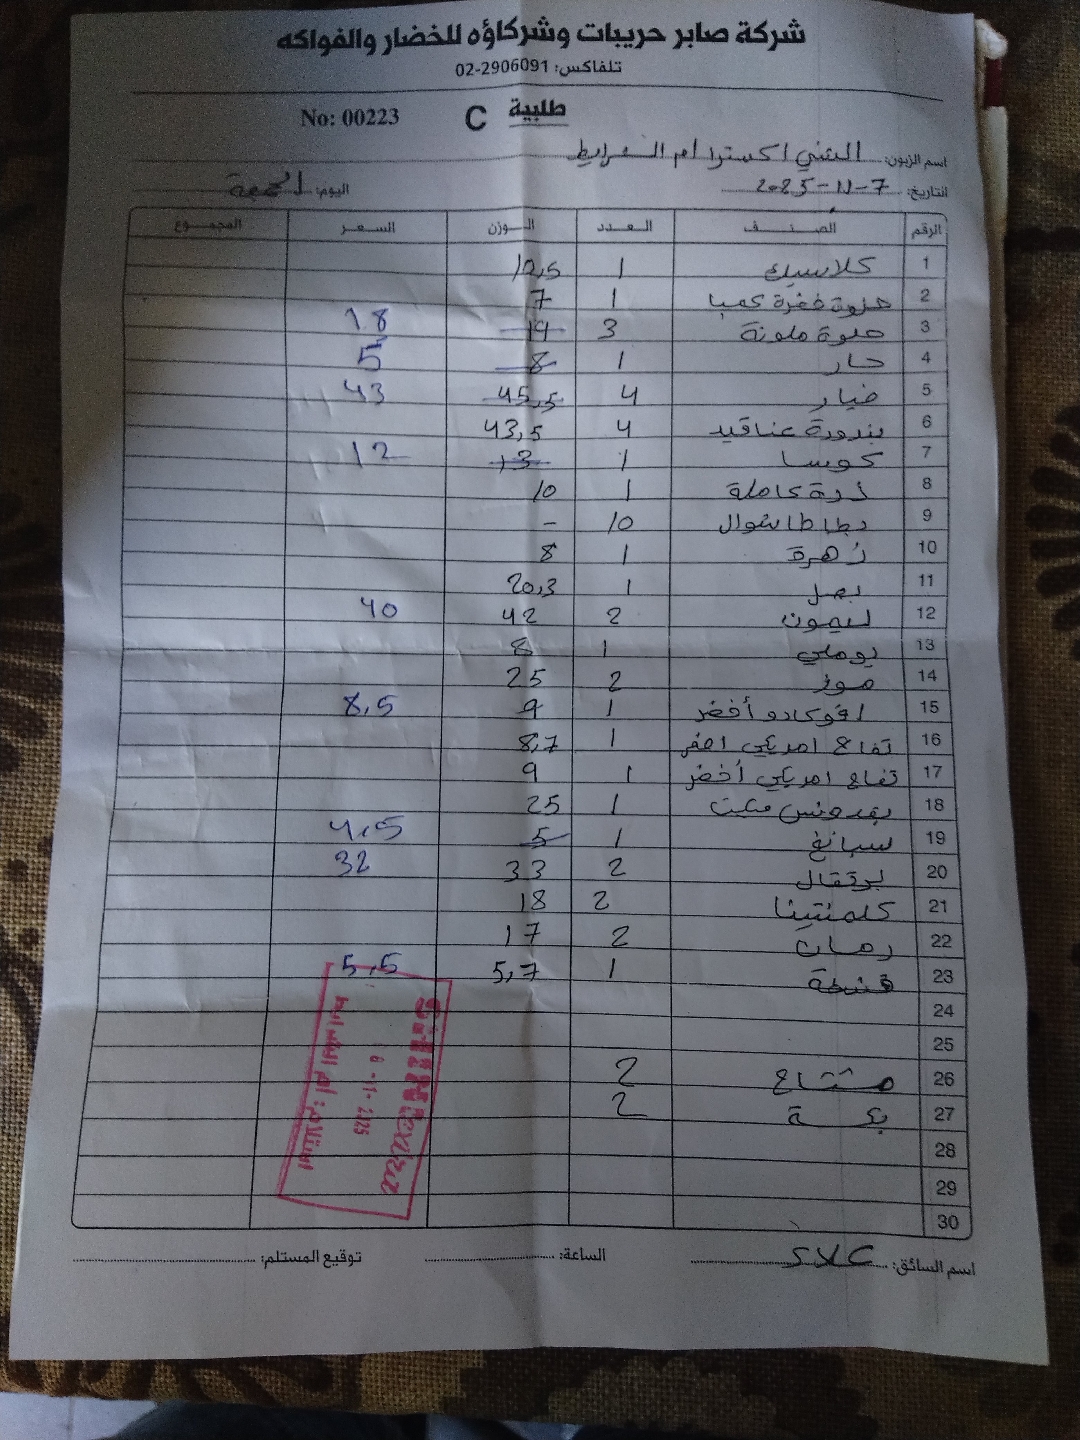 شركة صابر حريبات وشركاؤه للخضار والفواكه
تلفاكس: 02-2906091
No: 00223 C طلبية
اسم الزبون: الشني اكسترا ام الشرايط
التاريخ: 7-11-2025 اليوم: الجمعة
الرقم الصنف العدد الوزن السعر المجموع
1 كلاسيك 1 12,5
2 حلوة خضرة كمبا 1 7
3 حلوة ملونة 3 19 18
4 حار 1 8 5
5 خيار 4 45,5 43
6 بندورة عناقيد 4 43,5
7 كوسا 1 13 12
8 ذرة كاملة 1 10
9 بطاطا شوال 10 -
10 زهرة 1 8
11 بصل 1 20,3
12 ليمون 2 42 40
13 بوملي 1 8
14 موز 2 25
15 افوكادو أخضر 1 9 8,5
16 تفاح امريكي اصفر 1 8,7
17 تفاح امريكي أخضر 1 9
18 بقدونس مكت 1 25
19 سبانخ 1 5 4,5
20 برتقال 2 33 32
21 كلمنتينا 2 18
22 رمان 2 17
23 قشطة 1 5,7 5,5
24
25
26 مشتاح 2
27 بكسة 2
28
29
30
استلام: ام الشرايط
اسم السائق: علاء الساعة: توقيع المستلم: